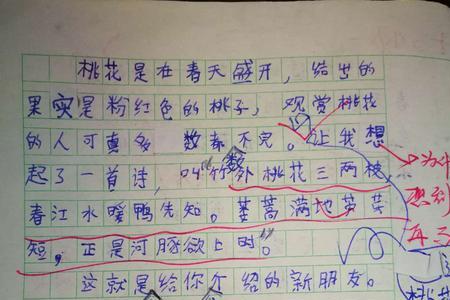 桃花是在春天盛开，结出的
果实是粉红色的桃子，观赏桃花
的人可真多 数都不完。让我想
起了一首诗，叫竹外桃花三两枝
春江水暖鸭先知。蒌蒿满地芦芽
短，正是河豚欲上时。
这就是给你介绍的新朋友。
数
为什
想到
再三